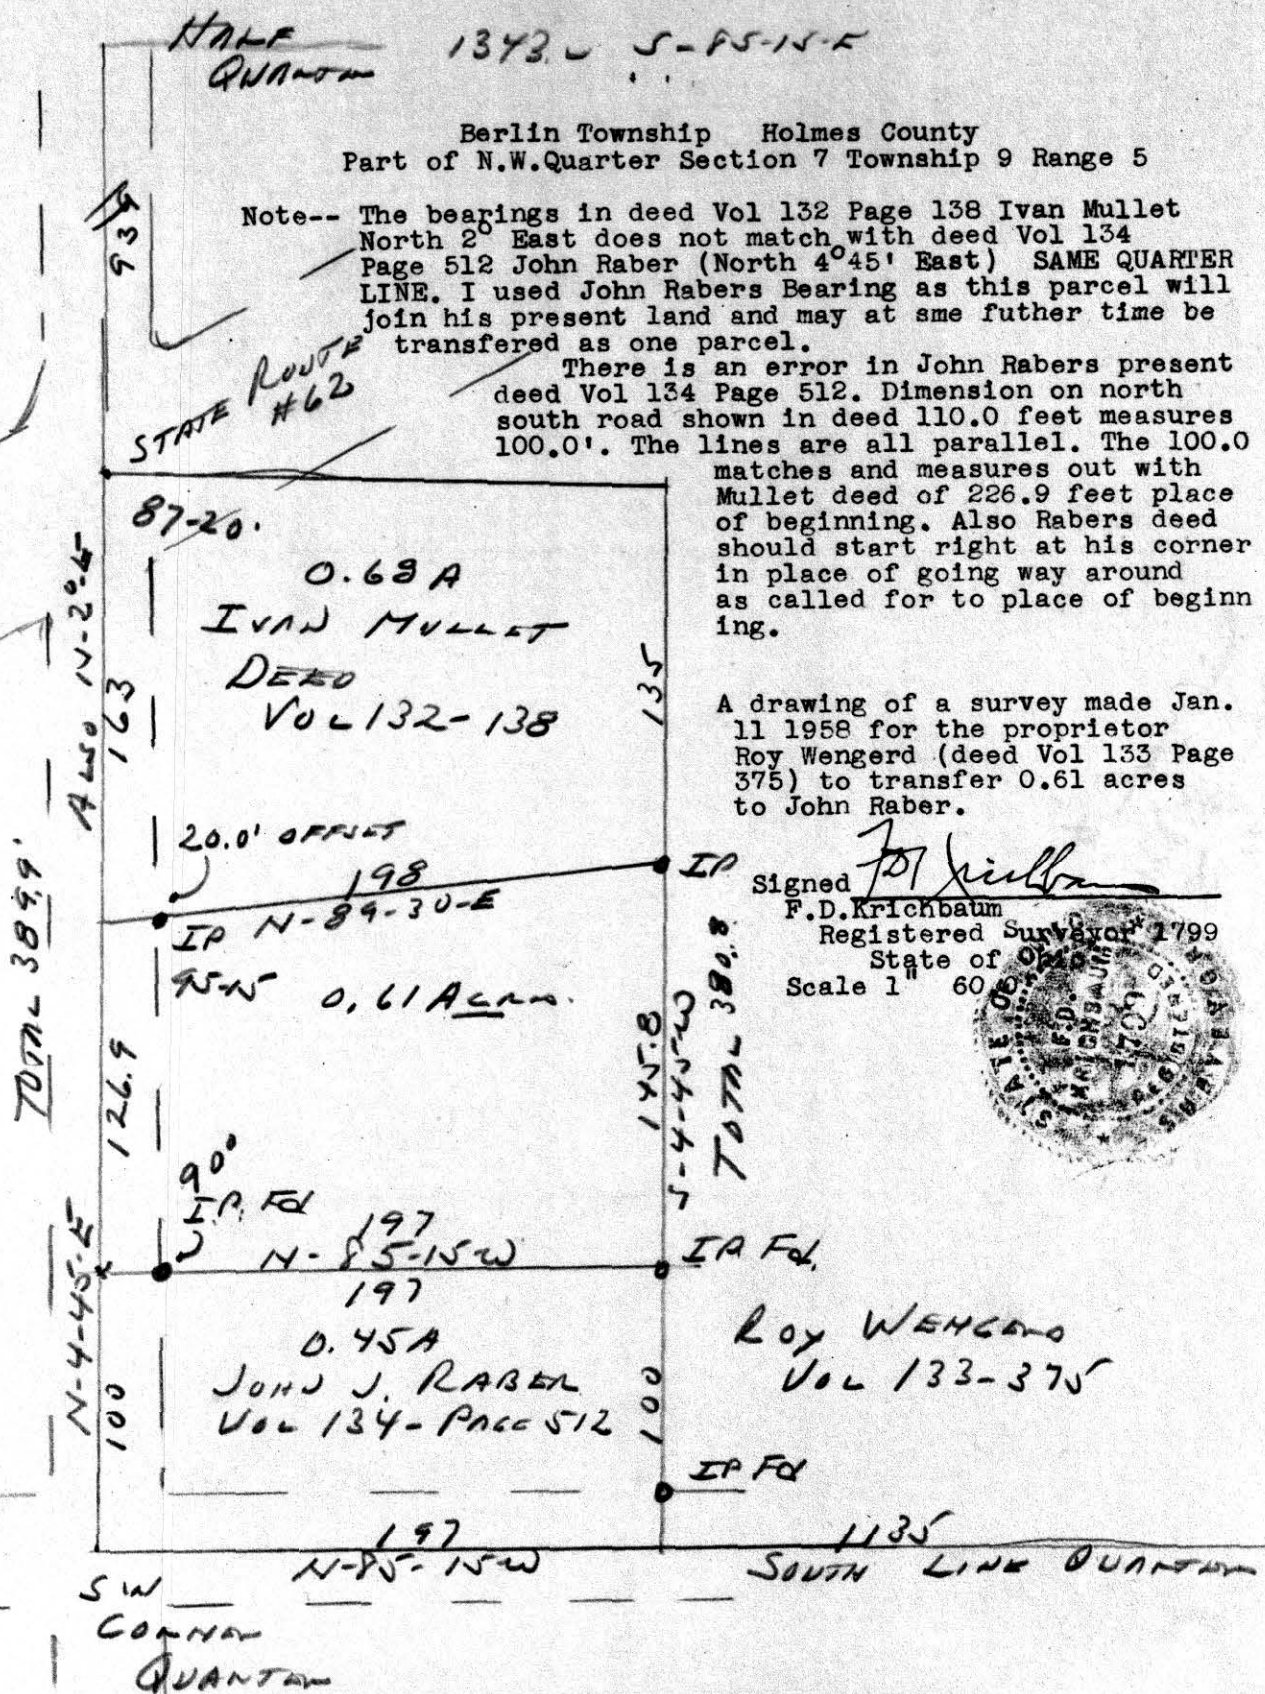 HALF
QUARTER
1343. S-85-15-E
Berlin Township Holmes County
Part of N.W.Quarter Section 7 Township 9 Range 5
Note-- The bearings in deed Vol 132 Page 138 Ivan Mullet
North 2° East does not match with deed Vol 134
Page 512 John Raber (North 4°45' East) SAME QUARTER
LINE. I used John Rabers Bearing as this parcel will
join his present land and may at sme futher time be
transfered as one parcel.
There is an error in John Rabers present
deed Vol 134 Page 512. Dimension on north
south road shown in deed 110.0 feet measures
100.0'. The lines are all parallel. The 100.0
matches and measures out with
Mullet deed of 226.9 feet place
of beginning. Also Rabers deed
should start right at his corner
in place of going way around
as called for to place of beginn
ing.
A drawing of a survey made Jan.
11 1958 for the proprietor
Roy Wengerd (deed Vol 133 Page
375) to transfer 0.61 acres
to John Raber.
Signed
F.D.Krichbaum
Registered Surveyor 1799
State of Ohio
Scale 1" 60
STATE OF OHIO
F.D.
KRICHBAUM
1799
REGISTERED
STATE ROUTE
#62
87-20'
0.68 A
IVAN MULLET
DEED
VOL 132-138
ALSO N-2°-E
163
135
20.0' OFFSET
198
N-89-30-E
IP
IP
95-15
0.61 ACRES
TOTAL 389.9'
126.9
145.8
S-4-45-W
TOTAL 380.8
90°
I.P. Fd
197
N-85-15W
IP Fd.
197
0.45A
JOHN J. RABER
VOL 134-PAGE 512
N-4-45-E
100
100
ROY WENGERD
VOL 133-375
IP Fd
197
N-85-15W
1135
SOUTH LINE QUARTER
SW
CORNER
QUARTER